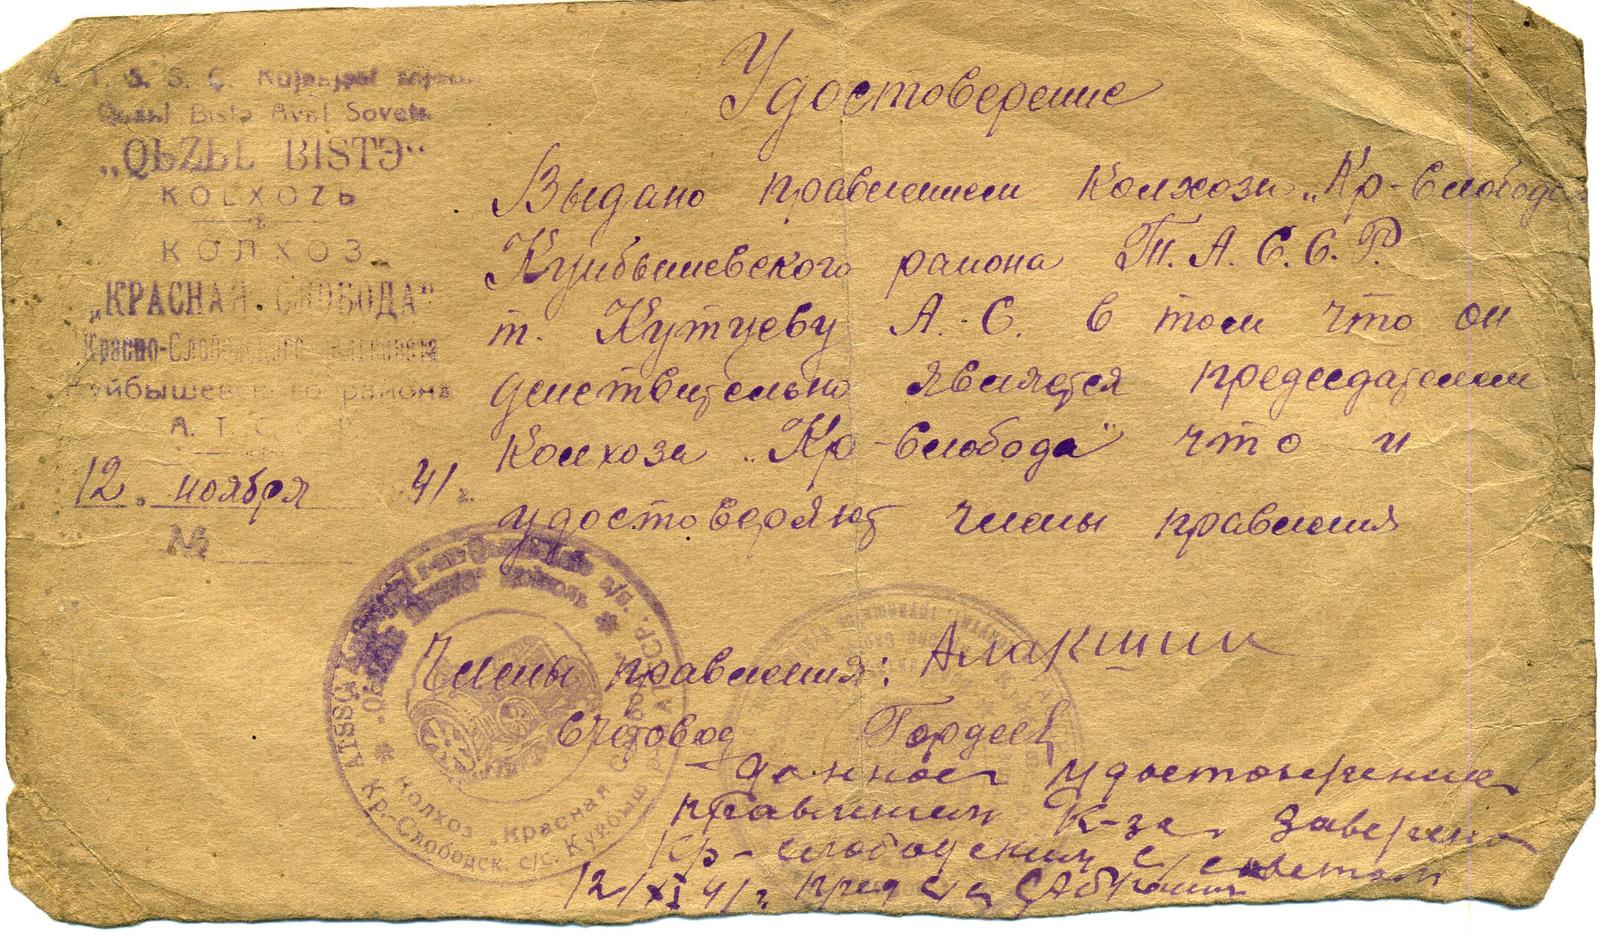 A. T. S. S. C. Kujbьşef rajonь
Qьzьl Bistə Avьl Soveti
„QЬZЬL BISTƏ“
KOLXOZЬ
КОЛХОЗ
„КРАСНАЯ СЛОБОДА“
Красно-Слободского сельсовета
Куйбышевского района
А. Т. С. С. Р.
12. ноября 41 г.
№
Удостоверение
Выдано правлением колхоза „Кр-Слобода
Куйбышевского района Т. А. С. С. Р.
т. Кутуеву А. С. в том что он
действительно является председателем
колхоза „Кр-Слобода" что и
удостоверяют члены правления
Члены правления: Алакшин
Счетовод Гордеев
данное удостоверение
правления К-за заверено
Кр-слободским с/советом
12/XI 41 г. пред с/с
Колхоз „Красная Слобода"
Кр.-Слободск. с/с. Куйбыш